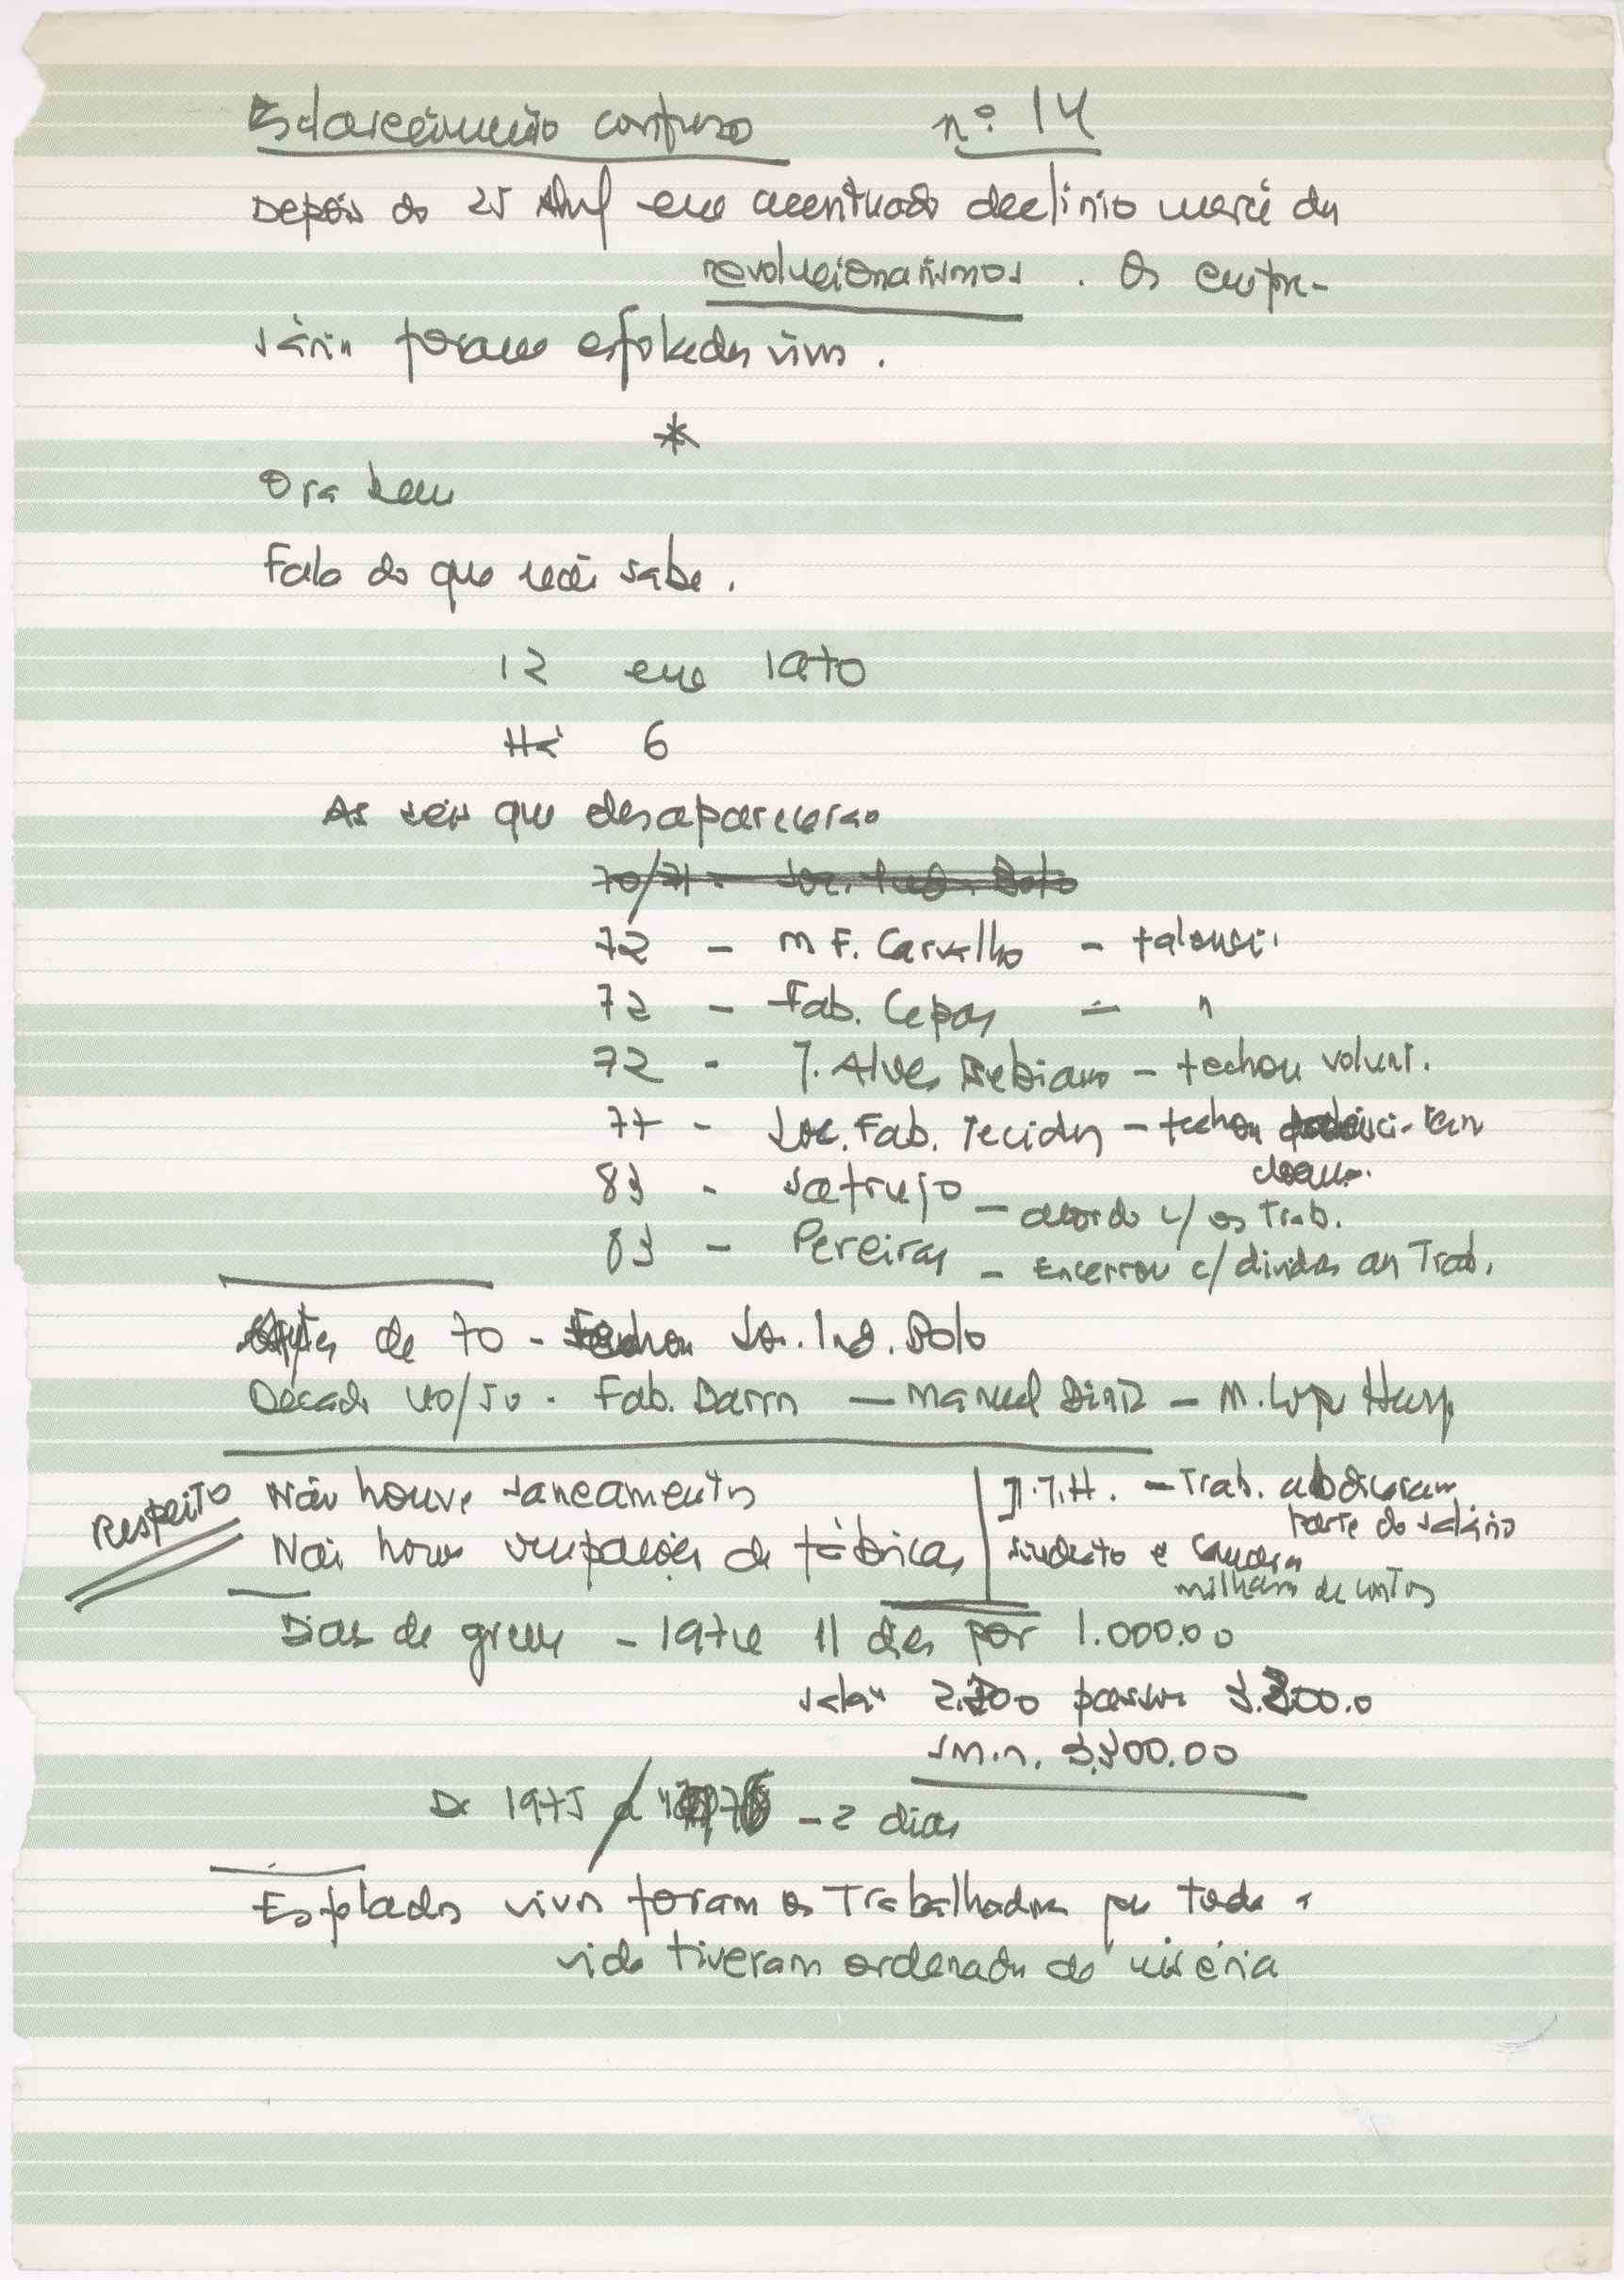 Esclarecimento confuso nº 14
Depois do 25 Abril em acentuado declinio mercê dos
revolucionarismos. Os empre-
sários foram esfolados vivos.
*
Ora bem
Fala do que não sabe.
12 em 1970
Há 6
As seis que desapareceram
70/71 - Soc. Ind. Bolo
72 - M F. Carvalho - falência
72 - Fab. Cepas - "
72 - J. Alves Bebiano - fechou volunt.
77 - Soc. Fab. Tecidos - fechou
83 - Satrujo - acordo c/ os Trab.
83 - Pereiras - Encerrou c/ dividas aos Trab.
Antes de 70 - Fechou Soc. Ind. Bolo
Década 40/50 - Fab. Barros - Manuel Diniz - M.
Respeito
Não houve saneamentos
Não houve ocupações de fábricas
J.T.H. - Trab. abdicaram
parte do salário
sindicato e Camara
milhares de contos
Dias de greve - 1974 11 dias por 1.000.00
2.300 passou 3.300.0
s m.n. 3.300.00
De 1975 a - 2 dias
Esfolados vivos foram os Trabalhadores que toda a
vida tiveram ordenados de miséria